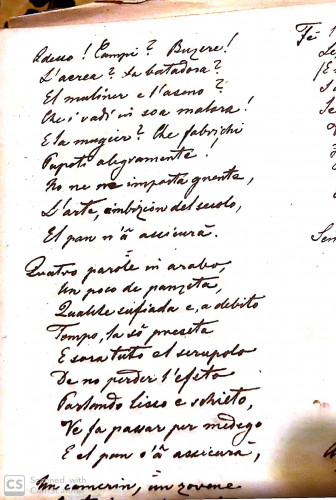 Adesso! Campi? Buzere!
L'aerea? La batadora?
El muliner e l'aseno?
Che i vadi in soa malora!
E la mugier? Che fabrichi
Pupoti alegramente!
No ne me importa gnente,
L'arte, ambizion del secolo,
El pan n'à assicurà.
Quatro parole in arabo,
Un poco de panzeta,
Qualche sufiada e, a debito
Tempo, la so preseta
E sora tuto al scrupolo
De no perder l'efeto
Parlando lisso e schieto,
Ve fa passar per medego
E el pan v'à assicurà,
In camerin, un zovene
Fé
Sen
CS Scanned with
CamScanner